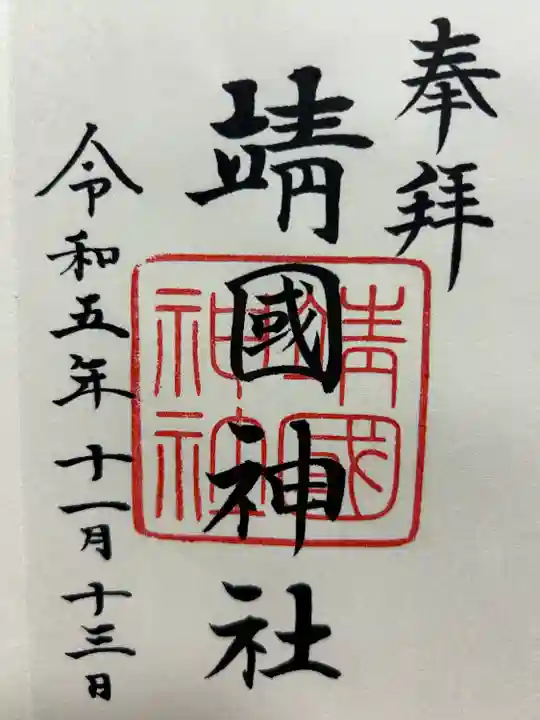 奉拝
靖國神社
令和五年十一月十三日
靖國神社